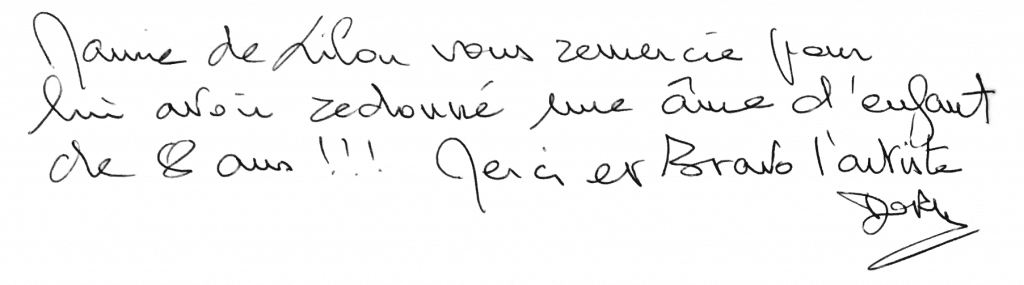 Mamie de Lilou vous remercie pour
lui avoir redonné une âme d'enfant
de 8 ans !!! Merci et Bravo l'artiste